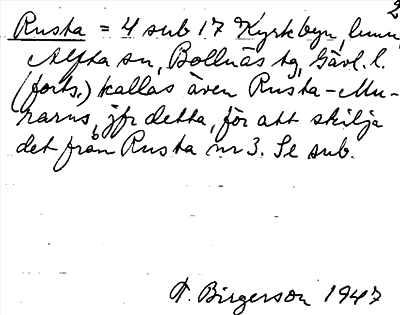 2
Rusta = 4 sub 17 Kyrkbyn, hmn,
Alfta sn, Bollnäs tg, Gävl. l.
(forts.) kallas även Rusta-Mu-
rarns, jfr detta, för att skilja
det från Rusta nr 3. Se sub.
T. Birgerson 1947